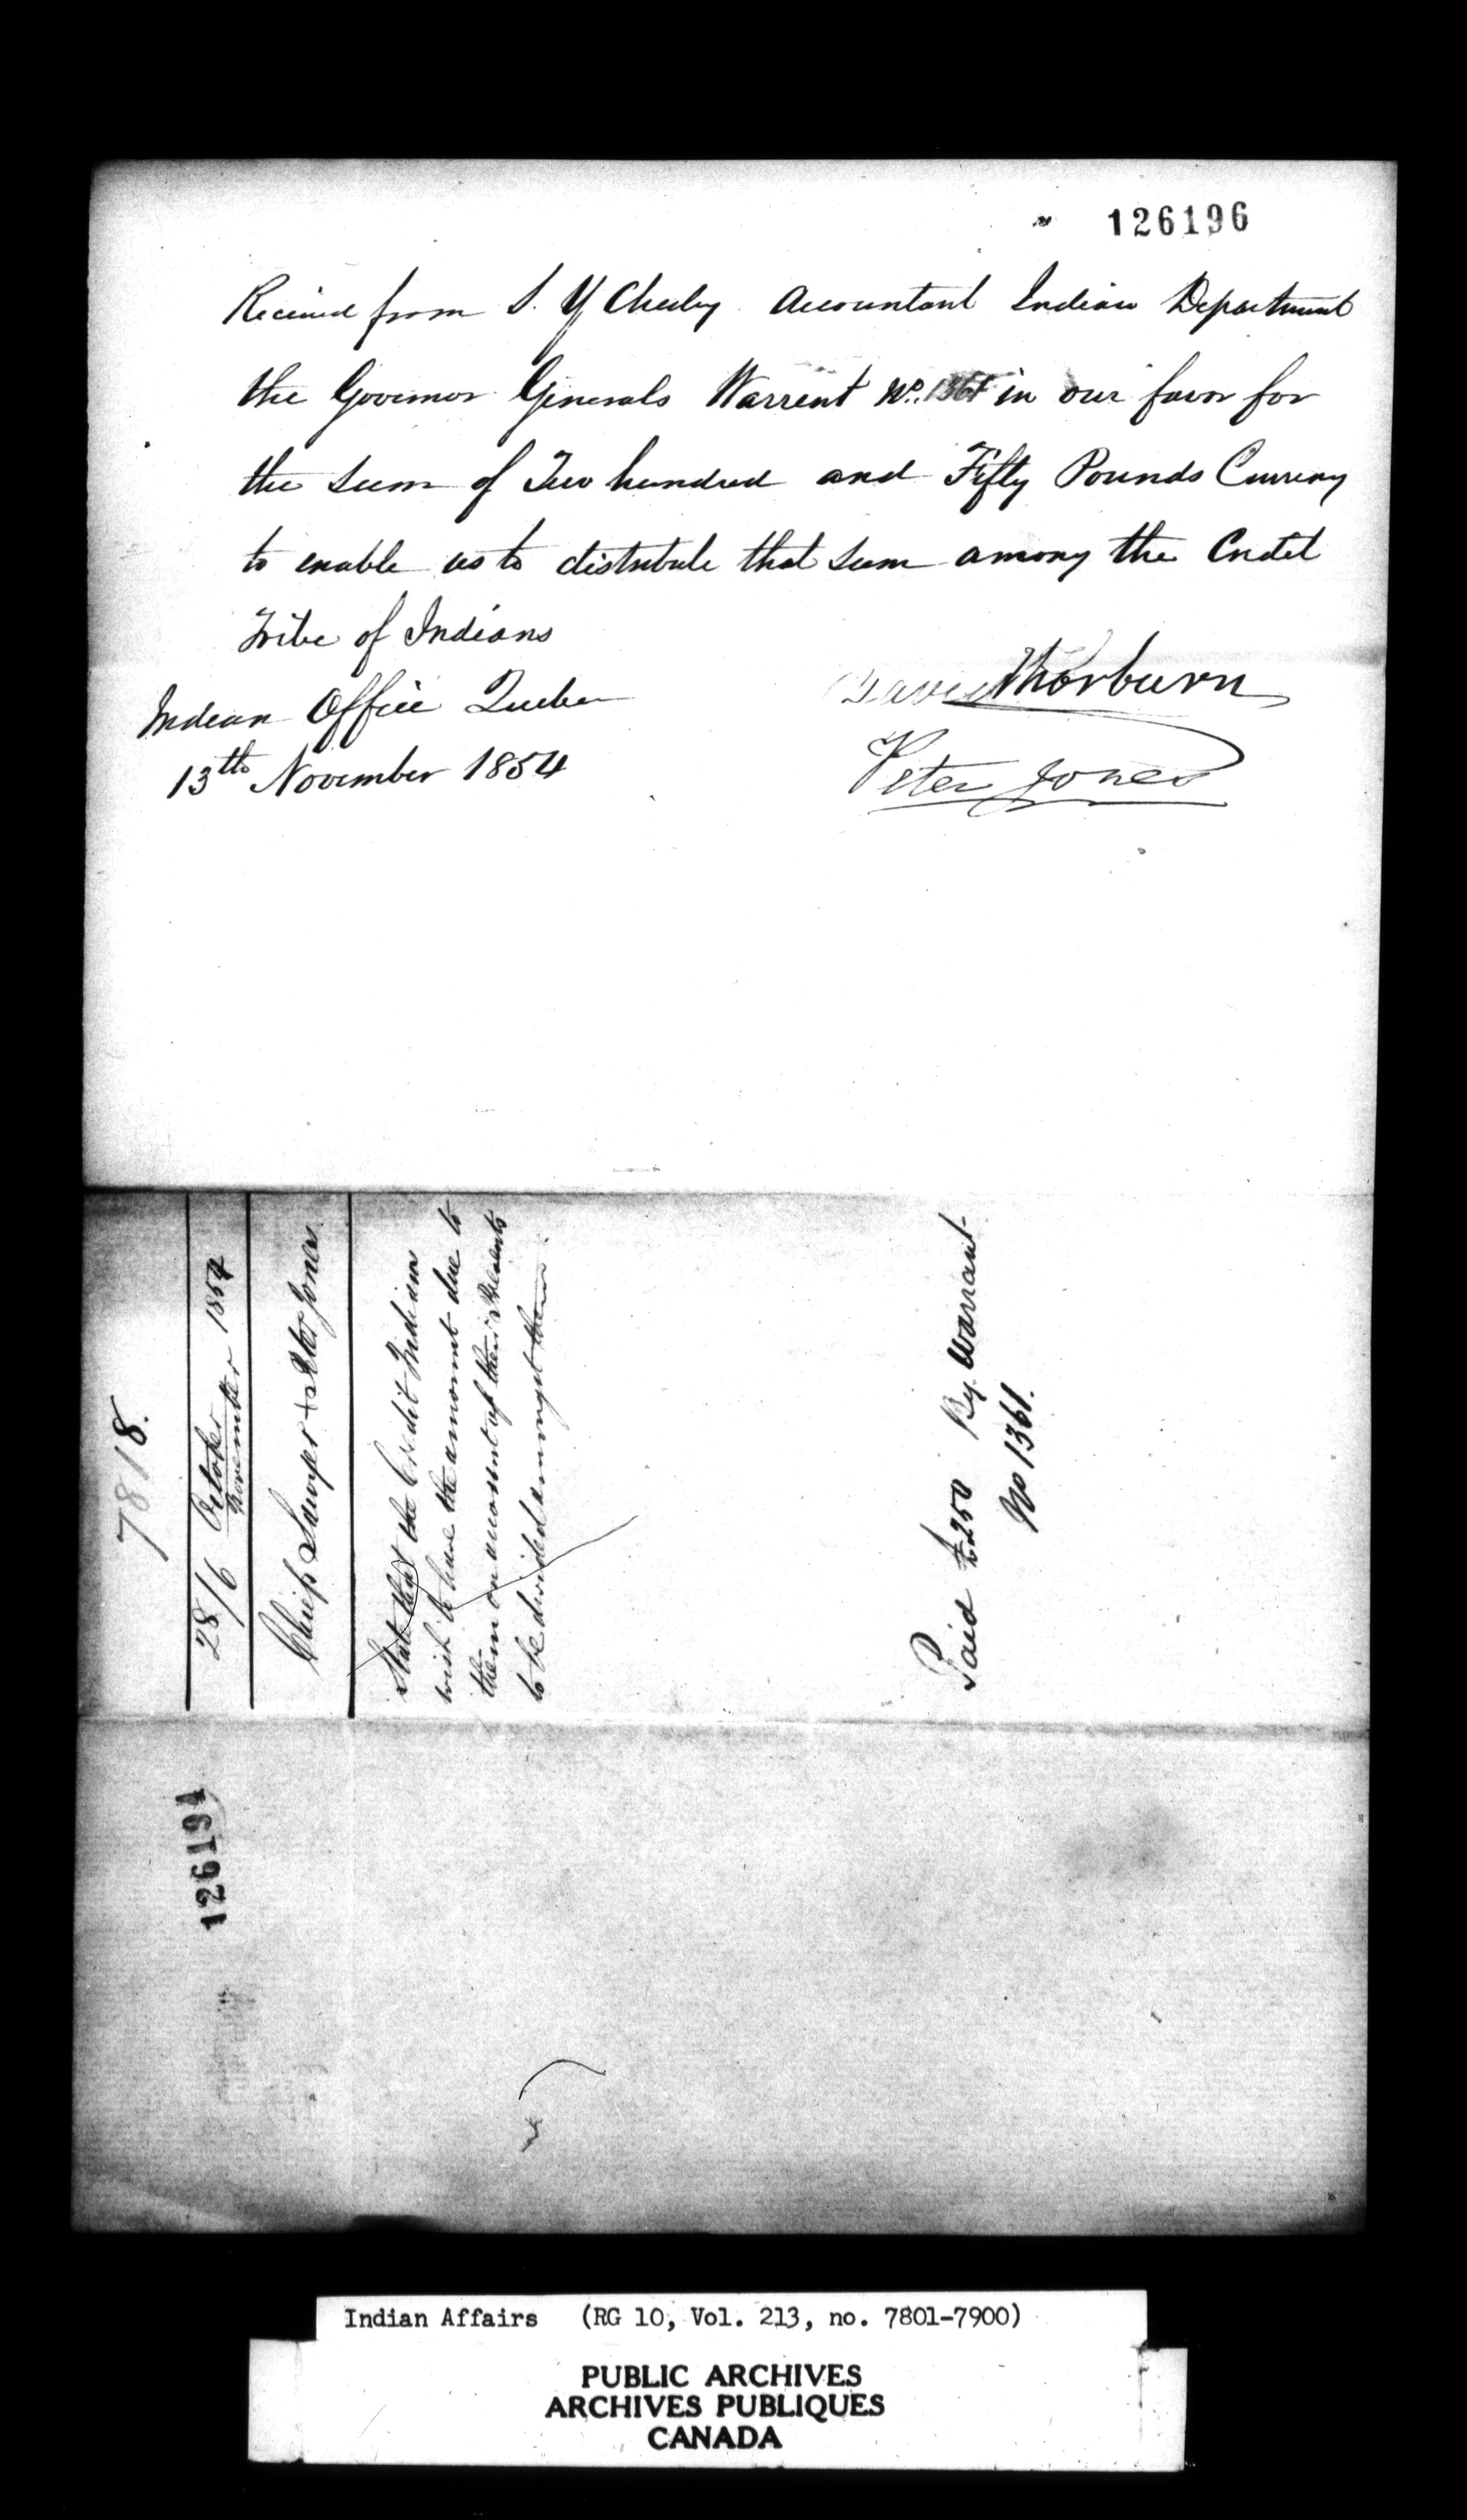 126196
Received from S. Y Chesley Accountant Indian Department
the Governor Generals Warrent No. 1361 in our favor for
the sum of Two hundred and Fifty Pounds Currency
to enable us to distribute that sum among the Credit
Tribe of Indians
Indian Office Quebec
13th November 1854
David Thorburn
Peter Jones
7818.
28/6 October November 1854
Chiefs Sawyer & Peter Jones
State that the Credit Indians
wish to have the amount due to
them on account of their Presents
to be divided amongst them.
Paid £250 By Warrant
No 1361.
126194
Indian Affairs (RG 10, Vol. 213, no. 7801-7900)
PUBLIC ARCHIVES
ARCHIVES PUBLIQUES
CANADA